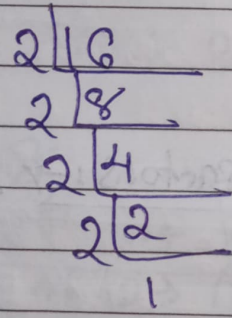 2 16
2 8
2 4
2 2
1